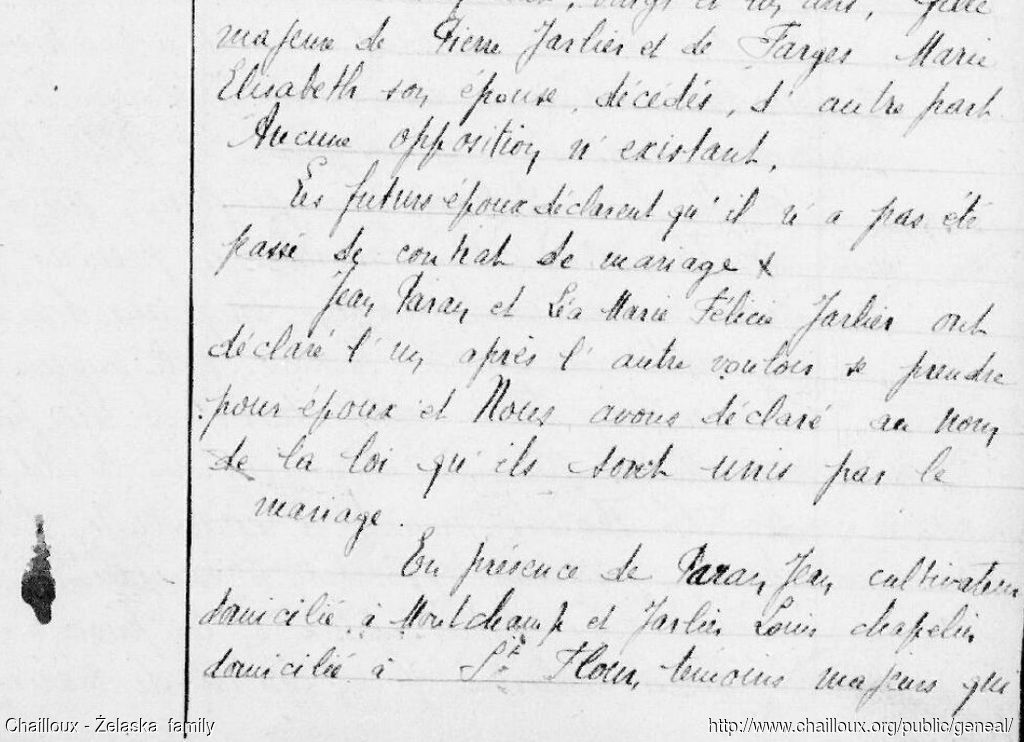 vingt et un ans, fille
majeure de Pierre Jarlier et de Farges Marie
Elisabeth son épouse, décédés, d'autre part
Aucune opposition n'existant,
Les futurs époux déclarent qu'il n'a pas été
passé de contrat de mariage x
Jean Paran et Léa Marie Félicie Jarlier ont
déclaré l'un après l'autre vouloir se prendre
pour époux et Nous avons déclaré au nom
de la loi qu'ils sont unis par le
mariage.
En présence de Paran Jean cultivateur
domicilié à Montchamp et Jarlier Louis chapelier
domicilié à St Flour, témoins majeurs qui
Chailloux - Żelaska family
http://www.chailloux.org/public/geneal/